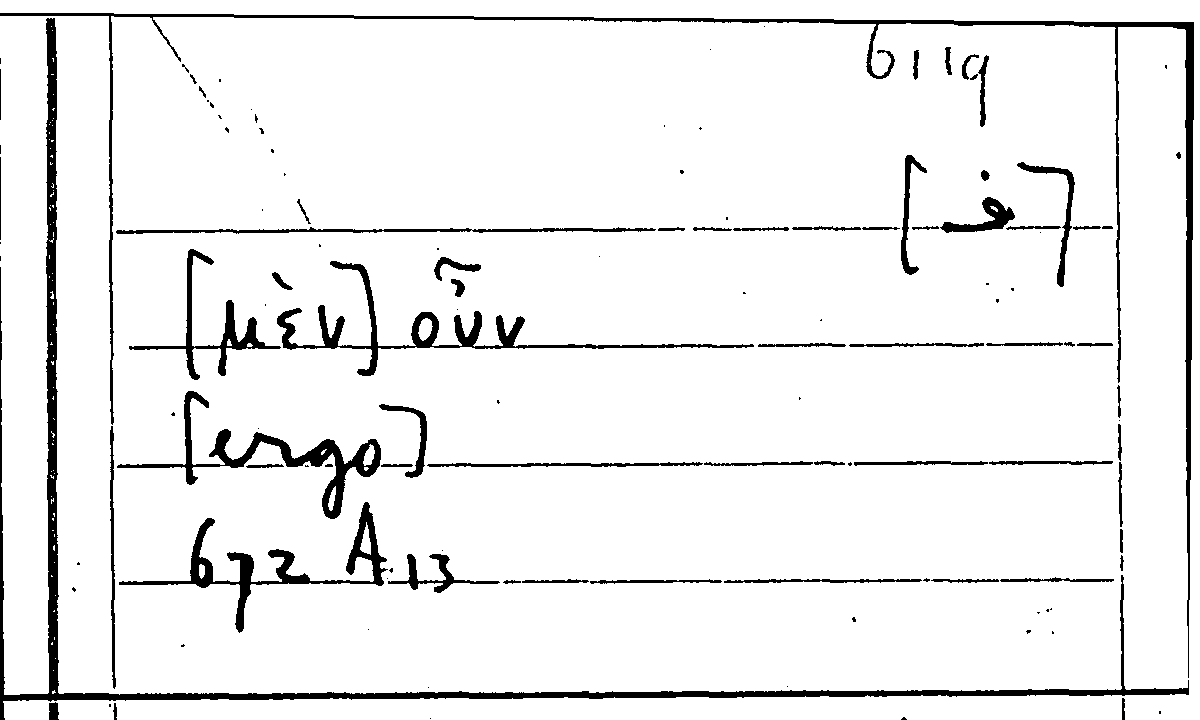 6119
[ف]
[μὲν] οὖν
[ergo]
672 A13